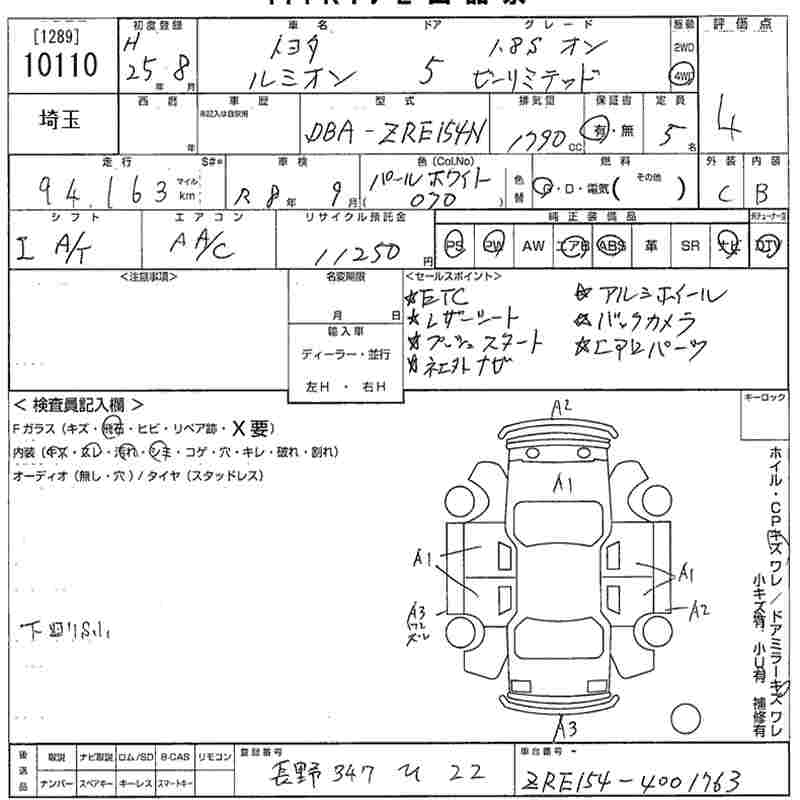 [1289]
10110
初度登録
H
25 年 8 月
車名
トヨタ
ルミオン
ドア
5
グレード
1.8S オン
ビーリミテッド
駆動
2WD
4WD
評価点
4
埼玉
西暦
年
車歴
未記入は自家用
型式
DBA-ZRE154N
排気量
1790 cc
保証書
有・無
定員
5 名
走行
94,163
マイル
km
S#*
車検
R 8年 9月
色(Col.No)
パールホワイト
( 070 )
色替
燃料
G・D・電気( その他 )
外装
C
内装
B
シフト
I A/T
エアコン
A A/C
リサイクル預託金
11250 円
純正装備品
PS PW AW エアB ABS 革 SR ナビ DTV
<注意事項>
名変期限
月 日
輸入車
ディーラー・並行
左H ・ 右H
<セールスポイント>
☆ETC ☆アルミホイール
☆レザーシート ☆バックカメラ
☆プッシュスタート ☆エアロパーツ
☆社外ナビ
< 検査員記入欄 >
Fガラス(キズ・飛石・ヒビ・リペア跡・X要)
内装(キズ・スレ・汚れ・シミ・コゲ・穴・キレ・破れ・割れ)
オーディオ(無し・穴)/タイヤ(スタッドレス)
下回りS小
キーロック
A2
A1
A1
A1
A3
ワレ
ズレ
A2
A3
ホイル・CPキズ ワレ/ドアミラーキズ ワレ
小キズ有 小U有 補修有
後送品
取説 ナビ取説 ロム/SD B-CAS リモコン
ナンバー スペアキー キーレス スマートキー
登録番号
長野 347 ひ 22
車台番号
ZRE154-4001763